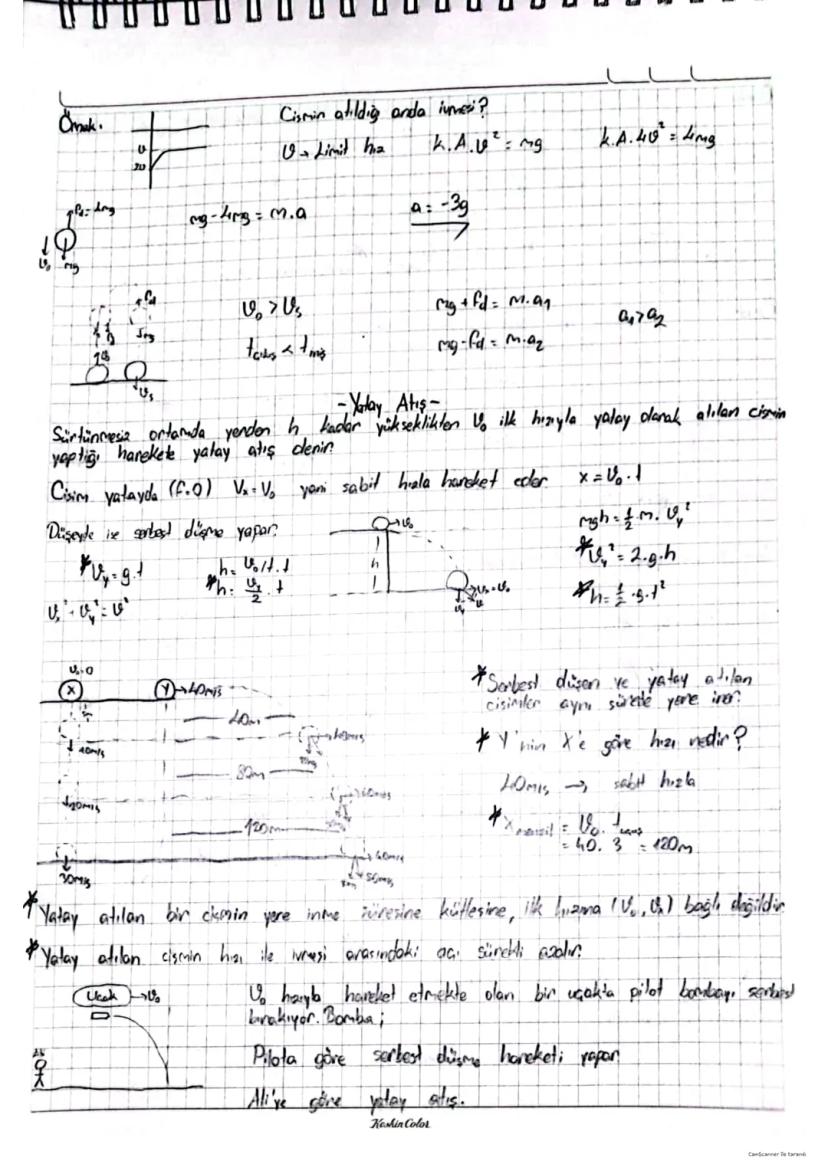 Örnek.
Cismin atıldığı anda ivmesi?
ϑ → Limit hız
k.A.ϑ² = mg
k.A.4ϑ² = 4mg
ϑ
2ϑ
fd = 4mg
ϑ₀
mg
mg - 4mg = m.a
a = -3g
fd
mg
ϑs
ϑ₀ > ϑs
tçıkış < tiniş
mg + fd = m.a₁
mg - fd = m.a₂
a₁ > a₂
- Yatay Atış -
Sürtünmesiz ortamda yerden h kadar yükseklikten ϑ₀ ilk hızıyla yatay olarak atılan cismin
yaptığı harekete yatay atış denir.
Cisim yatayda (f.0) Vx = V₀ yani sabit hızla hareket eder. x = ϑ₀ . t
Düşeyde ise serbest düşme yapar.
* ϑy = g.t
ϑx² + ϑy² = ϑ²
* h = ϑy/2 . t
ϑ₀
h
ϑx = ϑ₀
ϑy
ϑ
mgh = ½ m. ϑy²
* ϑy² = 2.g.h
* h = ½ .g.t²
ϑ₀=0
X
Y → 40m/s
40m
10m/s
40m/s
80m
20m/s
120m
30m/s
40m/s
50m/s
* Serbest düşen ve yatay atılan
cisimler aynı sürede yere iner.
* Y'nin X'e göre hızı nedir?
40m/s → sabit hızla
* Xmenzil = ϑ₀ . tuçuş
= 40. 3 = 120m
* Yatay atılan bir cismin yere inme süresine kütlesine, ilk hızına (ϑ₀, ϑx) bağlı değildir.
* Yatay atılan cismin hızı ile ivmesi arasındaki açı sürekli azalır.
Uçak → ϑ₀
Ali
ϑ₀ hızıyla hareket etmekte olan bir uçakta pilot bombayı serbest
bırakıyor. Bomba;
Pilota göre serbest düşme hareketi yapar.
Ali'ye göre yatay atış.
KeskinColor
CamScanner ile tarandı